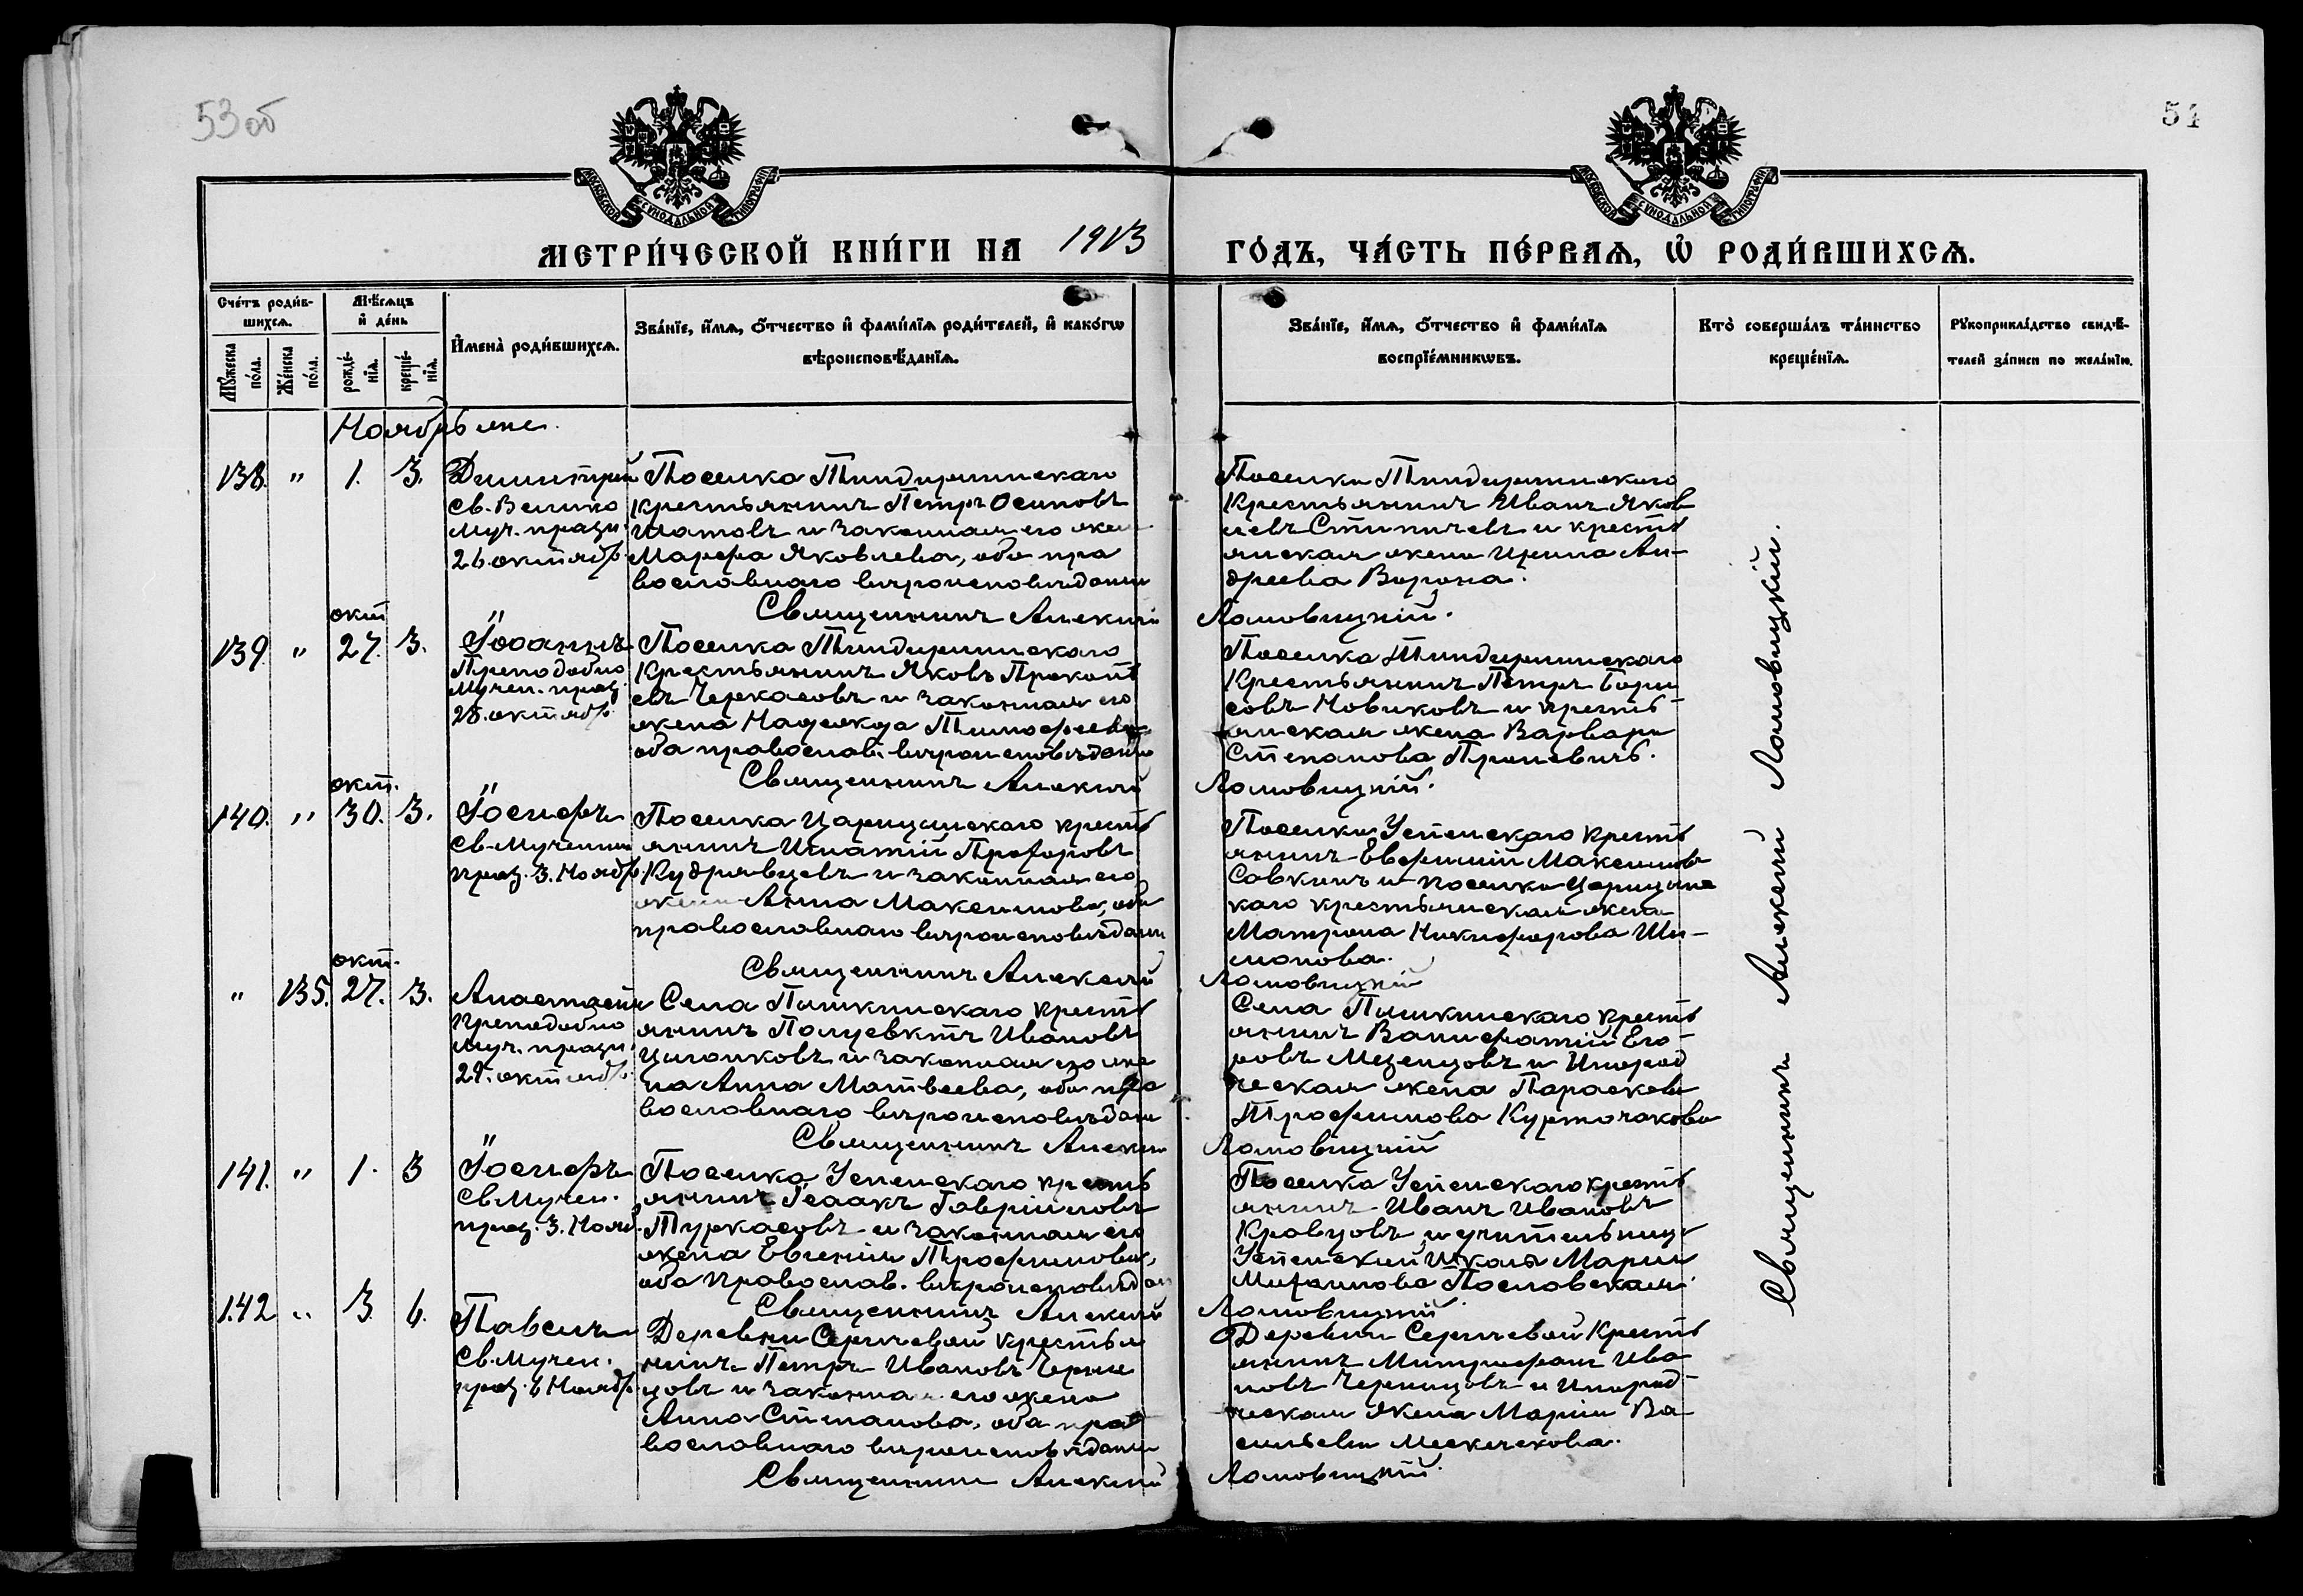 53об
54
МОСКОВСКОЙ СѴНОДАЛЬНОЙ ТИПОГРАФІИ
МОСКОВСКОЙ СѴНОДАЛЬНОЙ ТИПОГРАФІИ
МЕТРИ́ЧЕСКОЙ КНИ́ГИ НА 1913 ГО́ДЪ, ЧА́СТЬ ПЕ́РВАѦ, Ѡ҆ РОДИ́ВШИХСѦ.
Сче́тъ роди́в-
шихсѧ.
Мꙋ́жеска по́ла.
Же́нска по́ла.
Мѣ́сѧцъ
и҆ де́нь
рожде́-
нїѧ.
креще́-
нїѧ.
И҆мена̀ роди́вшихсѧ.
Зва́нїе, и҆́мѧ, ѻ҆́тчество и҆ фами́лїѧ роди́телей, и҆ како́гѡ
вѣроисповѣ́данїѧ.
Зва́нїе, и҆́мѧ, ѻ҆́тчество и҆ фами́лїѧ
воспрїе́мникѡвъ.
Кто̀ соверша́лъ та́инство
креще́нїѧ.
Рꙋкоприкла́дство свидѣ́-
телей за́писи по жела́нїю.
Ноябрь мѣс.
138. " 1. 3.
Димитрій
Св. Велико
муч. празн.
26 октябр.
Поселка Тиндерлинскаго
крестьянинъ Петръ Осиповъ
Шатовъ и законная его жен
Марфа Яковлева, оба пра
вославнаго вѣроисповѣдани
Поселка Тиндерлинскаго
Крестьянинъ Иванъ Яков
левъ Стипичевъ и кресть
янская жена Ирина Ан-
дреева Ворона.
Священникъ Алексій Ломовицкій.
окт
139. " 27. 3.
Іоаннъ
Преподобно
мучен. праз.
28. октябр.
Поселка Тиндерлинскаго
Крестьянинъ Яковъ Прокопь
евъ Черкасовъ и законная его
жена Надежда Тимофеева
оба православ. вѣроисповѣдани
Поселка Тиндерлинскаго
Крестьянинъ Петръ Бори
совъ Новиковъ и кресть-
янская жена Варвара
Степанова Пролевичъ.
Священникъ Алексій Ломовицкій.
окт.
140. " 30. 3.
Іосифъ
Св. Мученик
праз. 3. Ноябр.
Поселка Царицинскаго кресть
янинъ Игнатій Прохоровъ
Кудрявцевъ и законная его
жена Анна Максимова, оба
православнаго вѣроисповѣдани
Поселка Успенскаго кресть
янинъ Евфимій Максимовъ
Савкинъ и поселка Царицинс
каго крестьянская жена
Матрона Никифорова Ши-
монова.
Священникъ Алексій Ломовицкій
окт.
" 135. 27. 3.
Анастасія
Преподобно
муч. празн.
29. октябр.
Села Пушкинскаго кресть
янинъ Полуевктъ Ивановъ
Цигановъ и законная его же
на Анна Матвеева, оба пра
вославнаго вѣроисповѣдани
Села Пушкинскаго кресть
янинъ Ванифатій Его-
ровъ Мезенцовъ и Инород
ческая жена Параскева
Трофимова Курточакова
Священникъ Алексій Ломовицкій
141. " 1. 3
Іосифъ
Св. Мучен.
праз. 3. Нояб.
Поселка Успенскаго кресть
янинъ Ісаакъ Гавріиловъ
Туркасовъ и законная его
жена Евгенія Трофимова,
оба Православ. вѣроисповѣдан
Поселка Успенскаго кресть
янинъ Иванъ Ивановъ
Кравцовъ и учительница
Успенской Школы Марія
Михаилова Пословская.
Священникъ Алексій Ломовицкій
142 " 3. 6.
Павелъ
Св. Мучен.
праз. 6 Ноябр.
Деревни Сергіевой крестья
нинъ Петръ Ивановъ Черни
цовъ и законная его жена
Анна Степанова, оба пра
вославнаго вѣроисповѣдани
Деревни Сергіевой Кресть
янинъ Митрофанъ Ива
новъ Черницовъ и Инород-
ческая жена Марія Ва-
сильева Мескечекова.
Священникъ Алексій Ломовицкій.
Священникъ Алексій Ломовицкій.